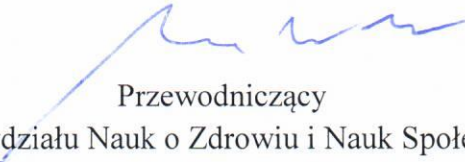 Przewodniczący
działu Nauk o Zdrowiu i Nauk Społe